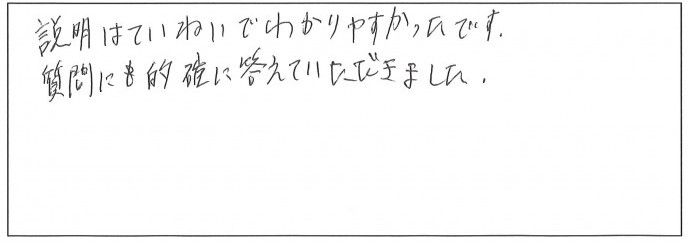 説明はていねいでわかりやすかったです.
質問にも的確に答えていただきました.